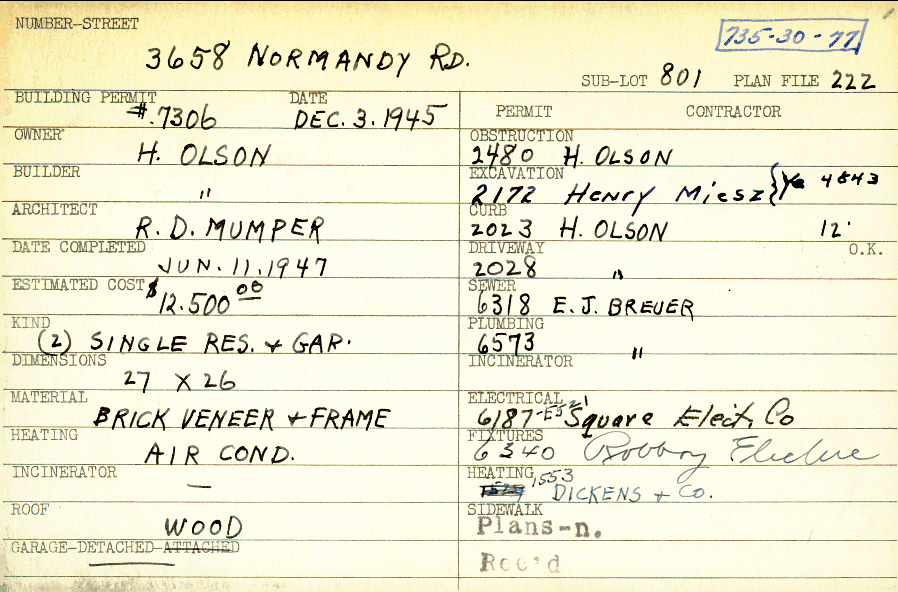 NUMBER-STREET
735-30-77
3658 NORMANDY RD.
SUB-LOT 801 PLAN FILE 222
BUILDING PERMIT DATE
#.7306 DEC. 3. 1945
OWNER
H. OLSON
BUILDER
"
ARCHITECT
R. D. MUMPER
DATE COMPLETED
JUN. 11. 1947
ESTIMATED COST $12.500 00
KIND
(2) SINGLE RES. & GAR.
DIMENSIONS
27 X 26
MATERIAL
BRICK VENEER & FRAME
HEATING
AIR COND.
INCINERATOR
—
ROOF
WOOD
GARAGE-DETACHED-ATTACHED
PERMIT CONTRACTOR
OBSTRUCTION
2480 H. OLSON
EXCAVATION
2172 Henry Miesz 4843
CURB
2023 H. OLSON 12'
DRIVEWAY O.K.
2028 "
SEWER
6318 E. J. BREUER
PLUMBING
6573 "
INCINERATOR
ELECTRICAL
6187 Square Elect. Co
FIXTURES
6340
HEATING
1553
DICKENS & CO.
SIDEWALK
Plans-n.
Rec'd